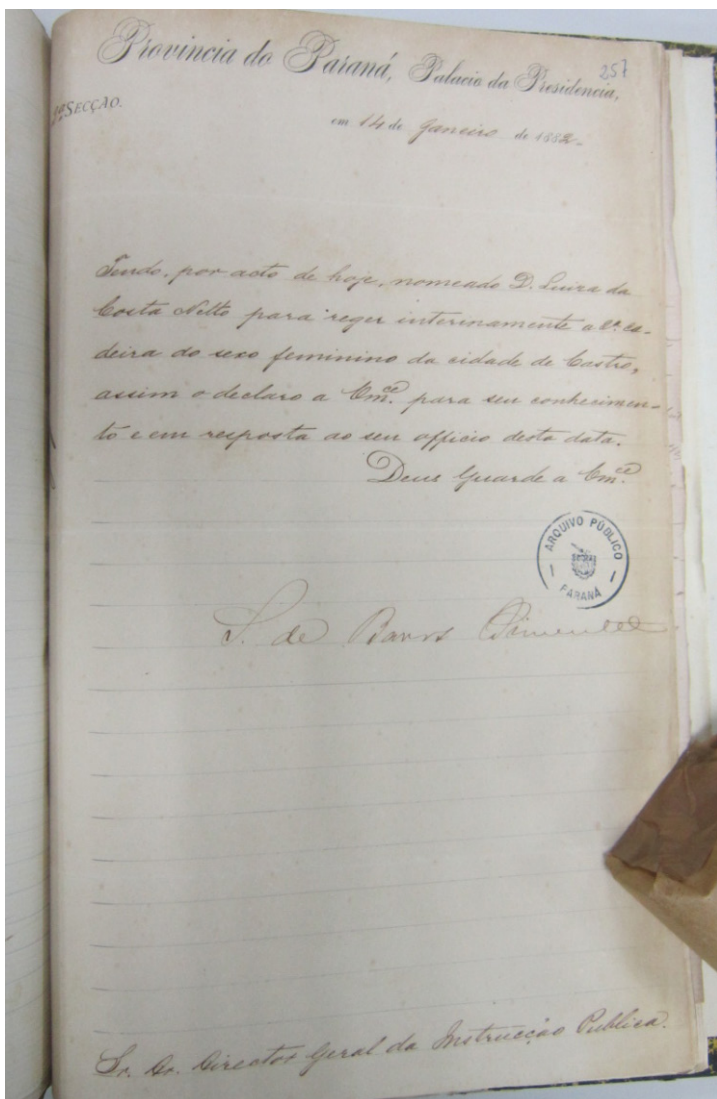 257
Provincia do Paraná, Palacio da Presidencia,
2ª SECÇÃO.
em 14 de Janeiro de 1882.
Tendo, por acto de hoje, nomeado D. Luiza da
Costa Netto para reger interinamente a 2ª ca-
deira do sexo feminino da cidade de Castro,
assim o declaro a Vm.ce para seu conhecimen-
to e em resposta ao seu officio desta data.
Deus Guarde a Vm.ce
ARQUIVO PÚBLICO
PARANÁ
S. de Barros Pimentel
Sr. Dr. Director Geral da Instrucção Publica.